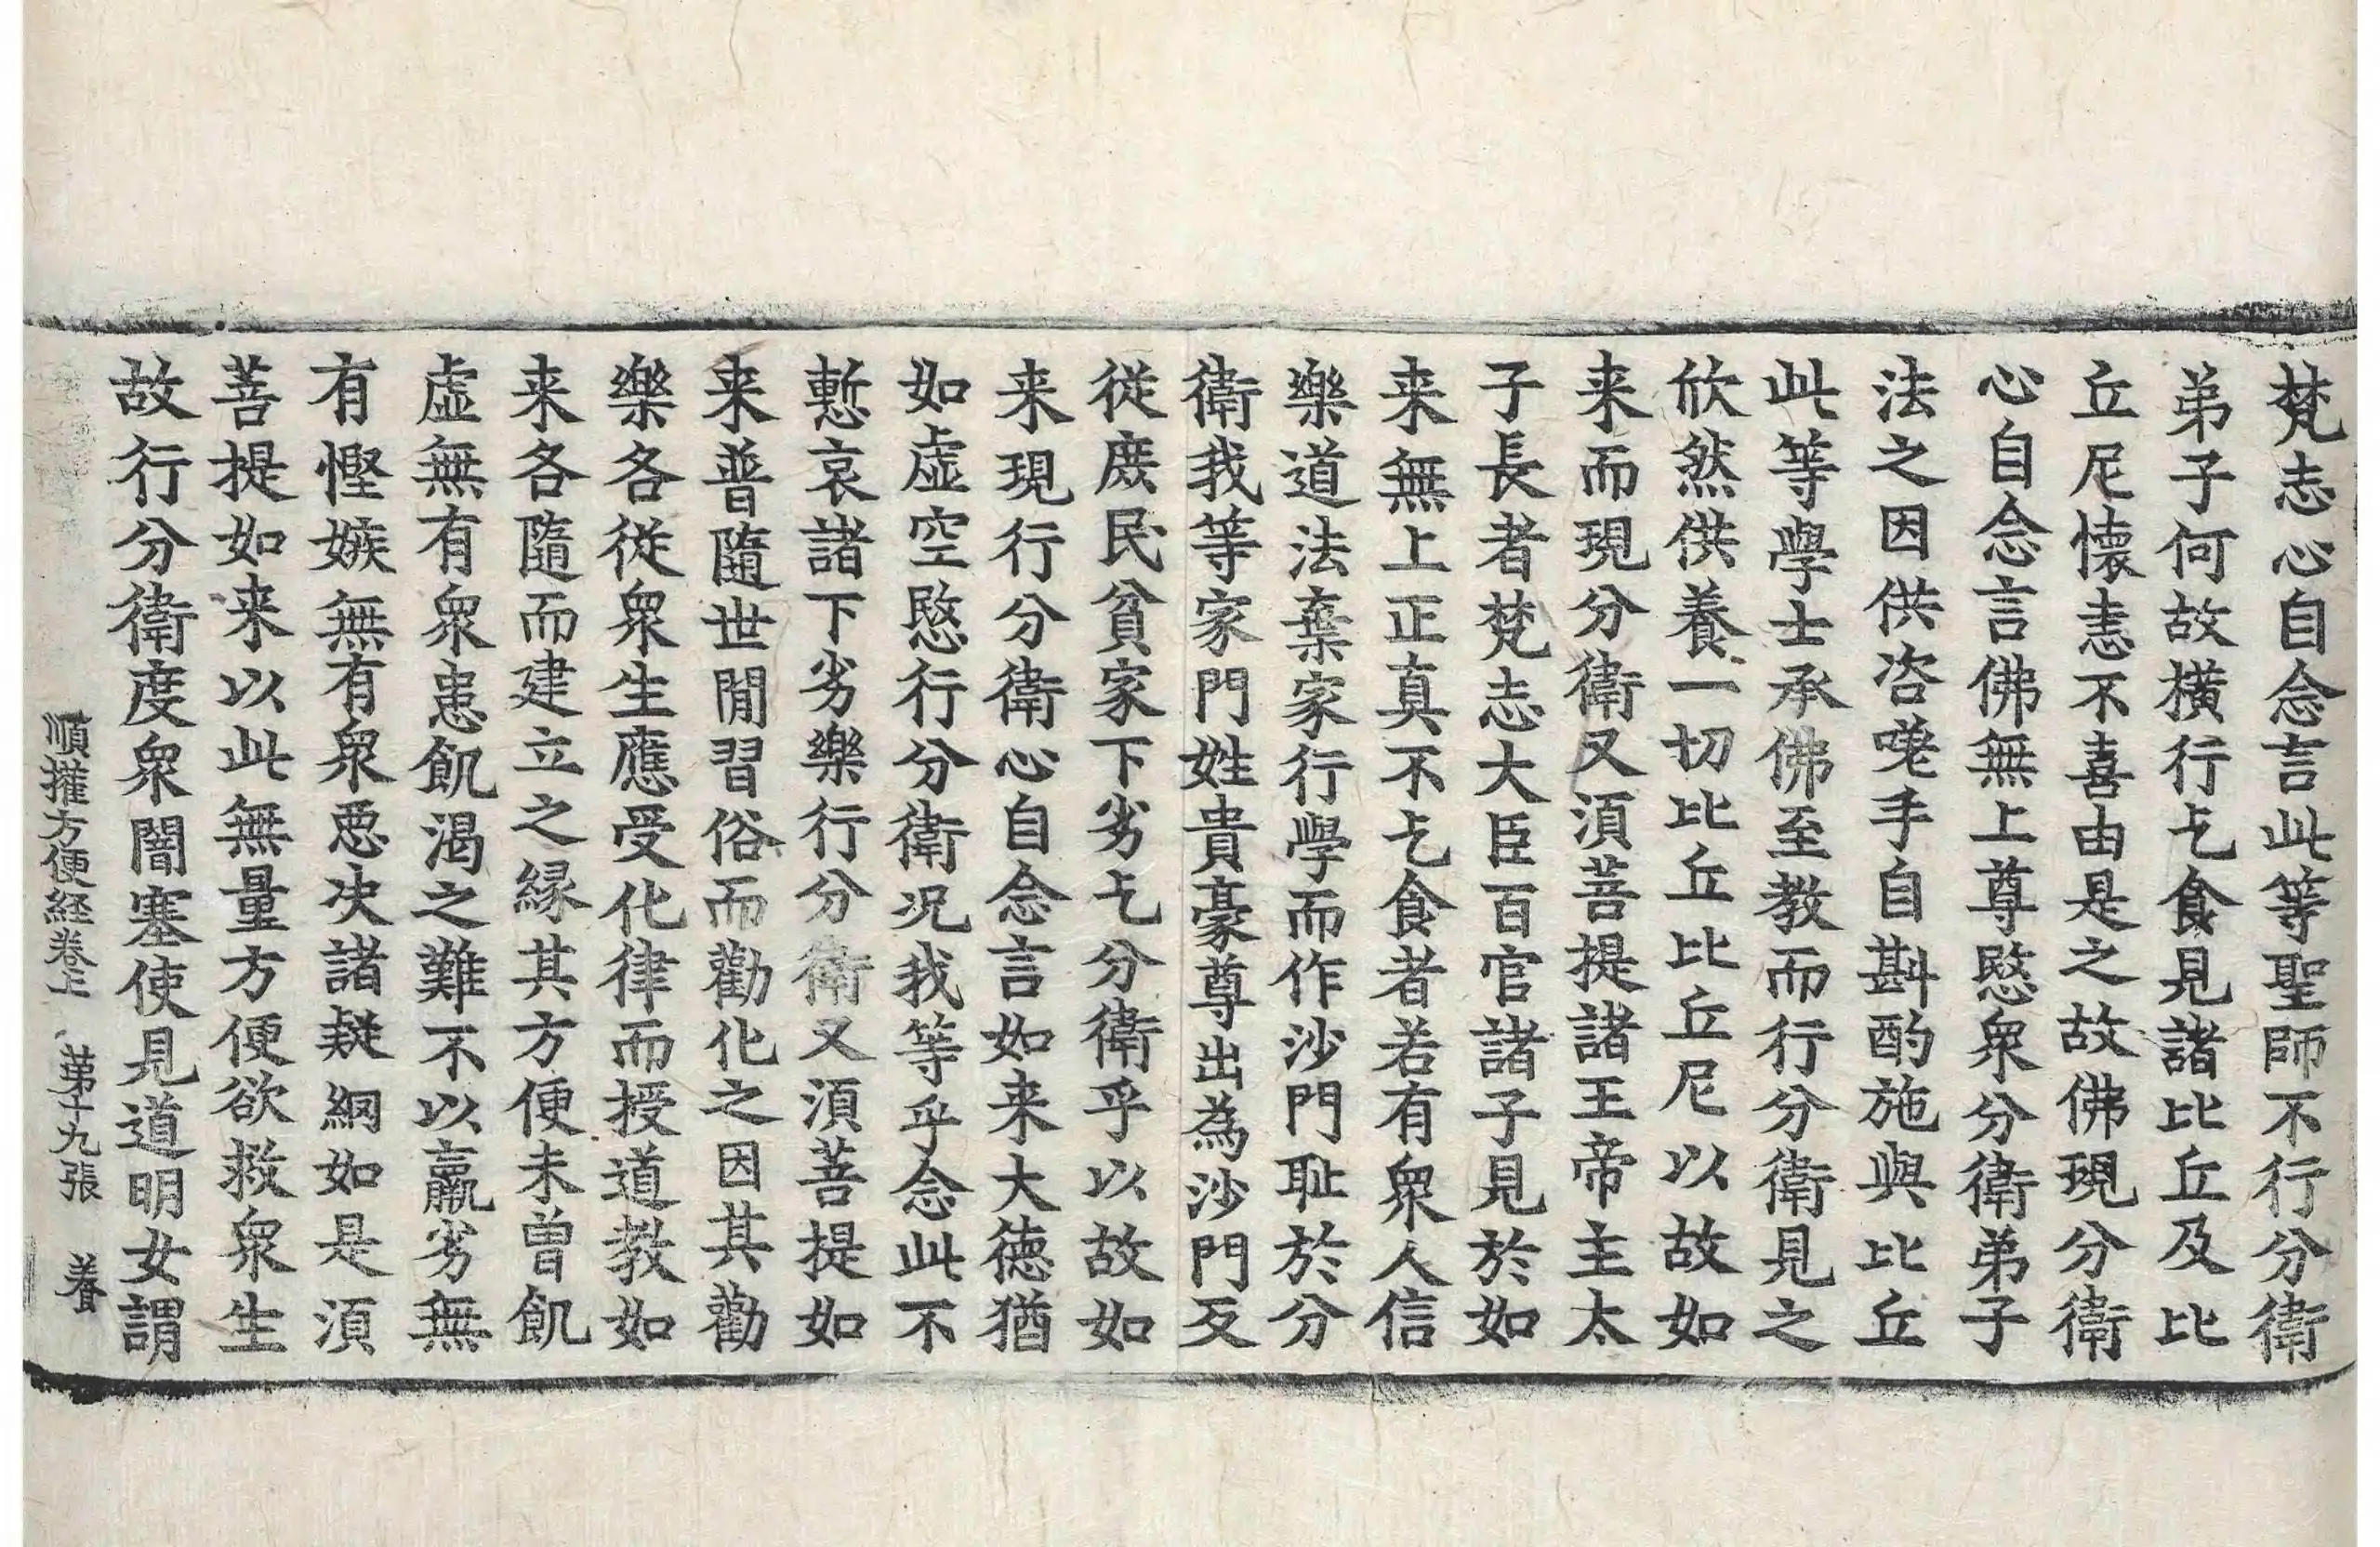 梵志心自念言此等聖師不行分衛
弟子何故橫行乞食見諸比丘及比
丘尼懷恚不喜由是之故佛現分衛
心自念言佛無上尊愍衆分衛弟子
法之因供咨嗟手自斟酌施與比丘
此等學士承佛至教而行分衛見之
欣然供養一切比丘比丘尼以故如
来而現分衛又須菩提諸王帝主太
子長者梵志大臣百官諸子見於如
来無上正真不乞食者若有衆人信
樂道法棄家行學而作沙門耻於分
衛我等家門姓貴豪尊出為沙門反
從庶民貧家下劣乞分衛乎以故如
来現行分衛心自念言如来大德猶
如虛空愍行分衛况我等乎念此不
慙哀諸下劣樂行分衛又須菩提如
来普隨世閒習俗而勸化之因其勸
樂各從衆生應受化律而授道教如
来各隨而建立之緣其方便未曾飢
虛無有衆患飢渴之難不以羸劣無
有慳嫉無有衆惡决諸疑網如是須
菩提如来以此無量方便欲救衆生
故行分衛度衆闇塞使見道明女謂
順擢方便経卷上 苐十九張 養